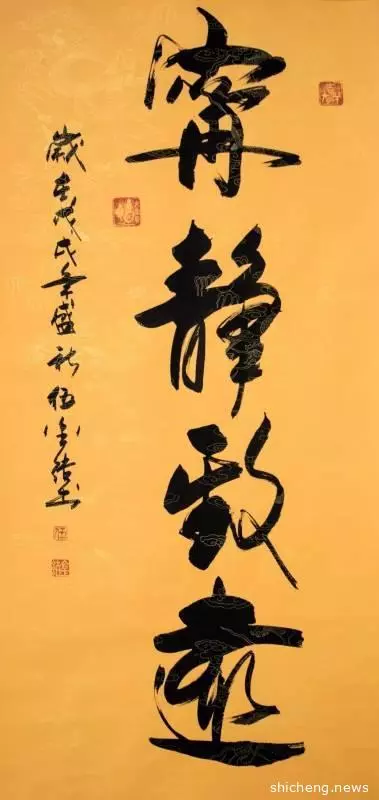 寧靜致遠
歲在戊戌年盛秋
shicheng.news